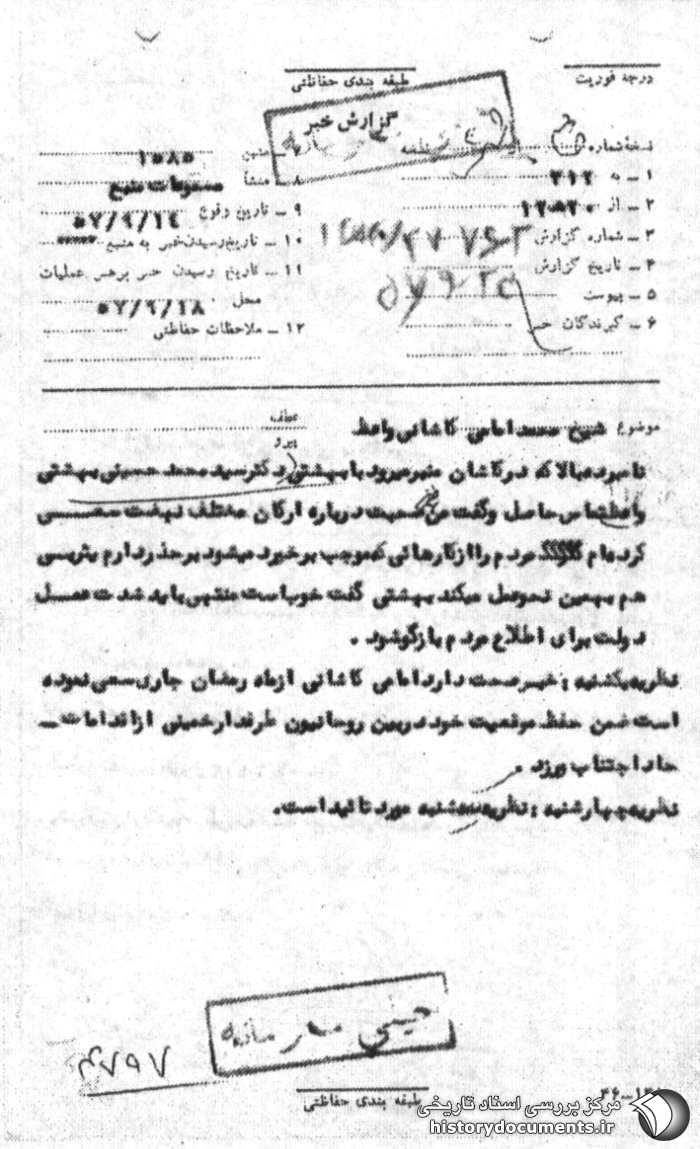 درجه فوریت
طبقه بندی حفاظتی
گزارش خبر
نسخهٔ شماره
۱ ــ به ۳۱۲
۲ ــ از
۳ ــ شماره گزارش
۴ ــ تاریخ گزارش
۵ ــ پیوست
۶ ــ گیرندگان خبر
۷ ــ منبع ۱۵۸۵
۸ ــ منشأ مسموعات منبع
۹ ــ تاریخ وقوع ۵۷/۹/۱۴
۱۰ ــ تاریخ رسیدن خبر به منبع
۱۱ ــ تاریخ رسیدن خبر برهبر عملیات
محل ۵۷/۹/۱۸
۱۲ ــ ملاحظات حفاظتی
موضوع شیخ محمد امامی کاشانی واعظ
عطف
پیرو
نامبرده بالا که در کاشان منبر میرود با بهشتی دکتر سید محمد حسینی بهشتی
واعظ تماس حاصل و گفت من صحبت درباره ارکان مختلف نهضت
کرده‌ام مردم را از کارهائی که موجب برخورد میشود بر حذر دارم
هم بهمین نحو عمل میکند بهشتی گفت خوب است منتهی باید شدت عمل
دولت برای اطلاع مردم بازگو شود .
نظریه یکشنبه : خبر صحت دارد امامی کاشانی از ماه رمضان جاری سعی نموده
است ضمن حفظ موقعیت خود در بین روحانیون طرفدار خمینی از اقدامات ــ
حاد اجتناب ورزد .
نظریه چهارشنبه : نظریه سه‌شنبه مورد تائید است.
طبقه بندی حفاظتی
مرکز بررسی اسناد تاریخی
historydocuments.ir